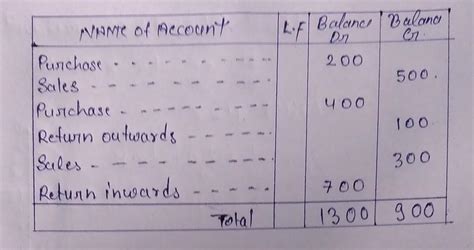 Name of Account L.F Balance Dr Balance Cr.
Purchase 200
Sales 500.
Purchase 400
Return outwards 100
Sales 300
Return inwards 700
Total 1300 900